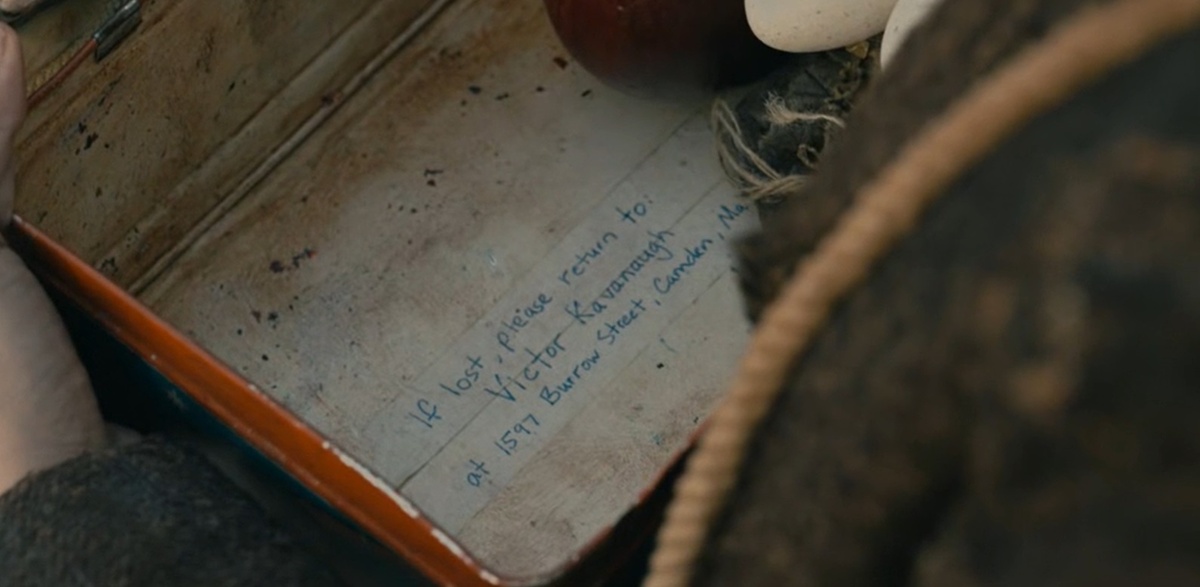 If lost, please return to:
Victor Kavanaugh
at 1597 Burrow Street, Camden, Ma